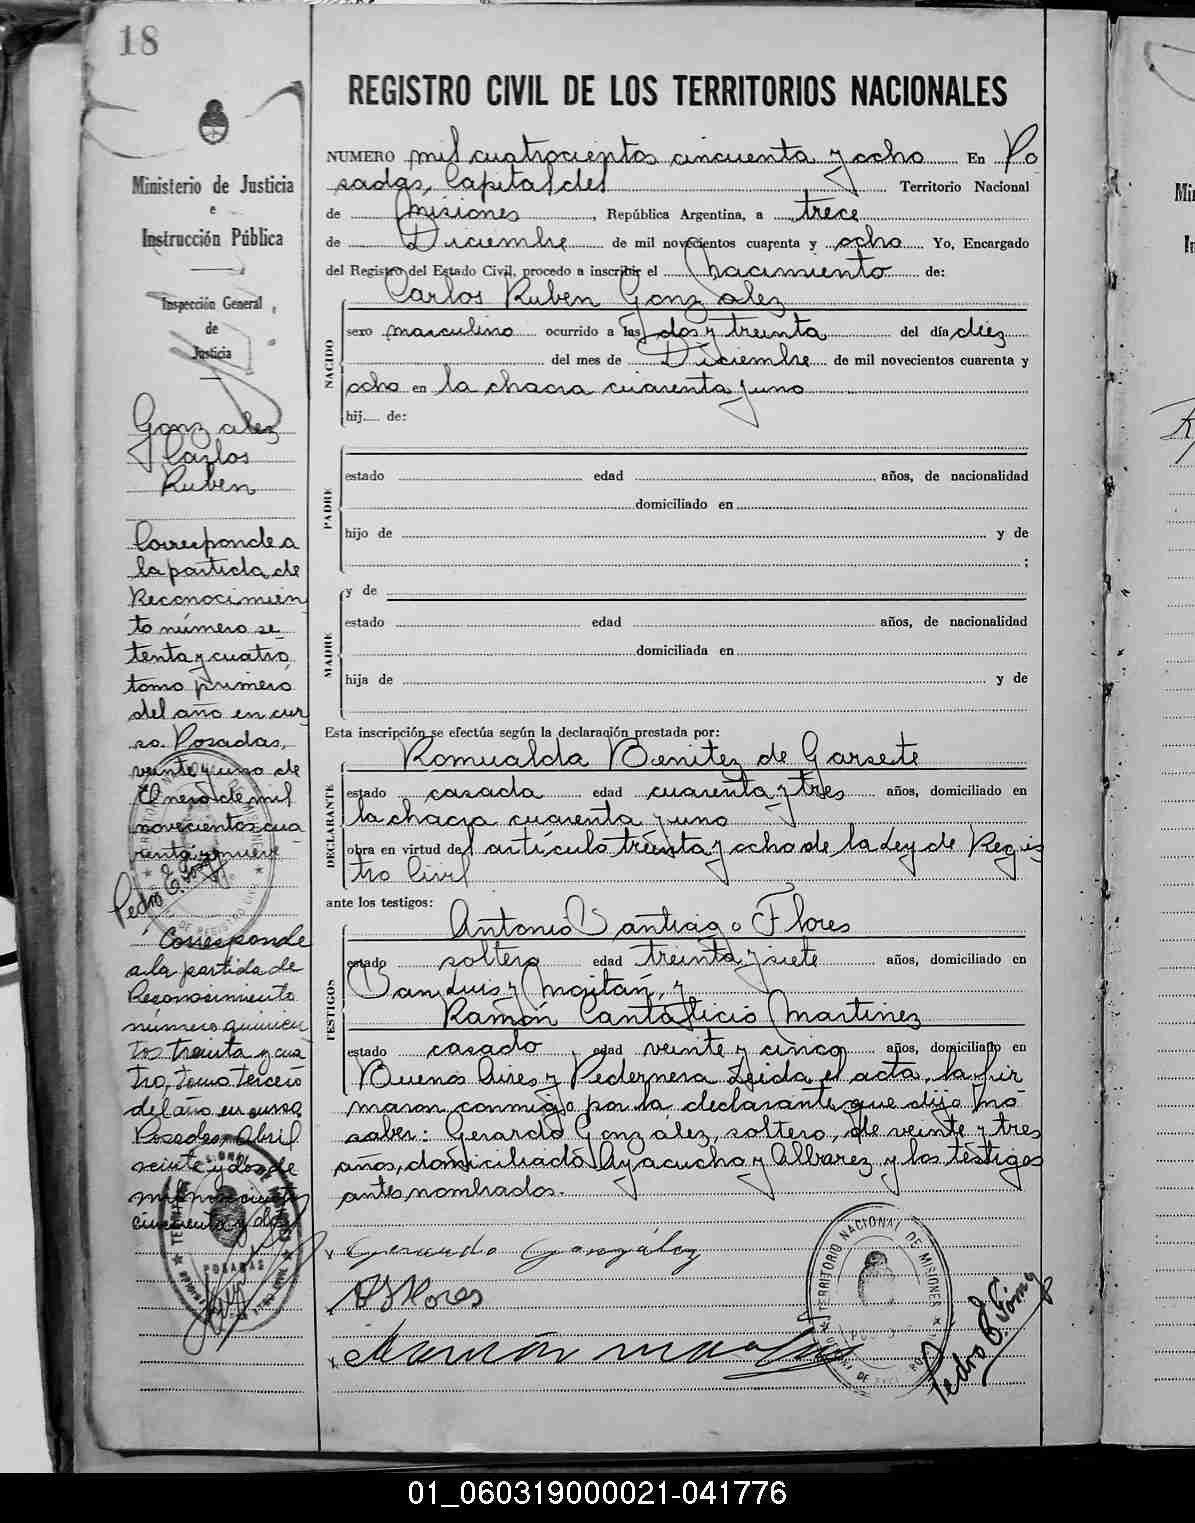 18
Ministerio de Justicia
e
Instrucción Pública
Inspección General
de
Justicia
Gonzalez
Carlos
Ruben
Corresponde a
la partida de
Reconocimien
to número se
tenta y cuatro
tomo primero
del año en cur
so. Posadas,
veinte y uno de
Enero de mil
novecientos cua
renta y nueve
Pedro E. Góm
Corresponde
a la partida de
Reconocimiento
número quinien
tos treinta y cua
tro, tomo tercero
del año en curso
Posadas, Abril
veinte y dos de
mil novecientos
cincuenta y dos
REGISTRO CIVIL DE LOS TERRITORIOS NACIONALES
NUMERO mil cuatrocientos cincuenta y ocho En Po
sadas, Capital del Territorio Nacional
de Misiones, República Argentina, a trece
de Diciembre de mil novecientos cuarenta y ocho Yo, Encargado
del Registro del Estado Civil, procedo a inscribir el nacimiento de:
Carlos Ruben Gonzalez
NACIDO
sexo masculino ocurrido a las dos y treinta del día diez
del mes de Diciembre de mil novecientos cuarenta y
ocho en la chacra cuarenta y uno
hij de:
PADRE
estado edad años, de nacionalidad
domiciliado en
hijo de y de
;
y de
MADRE
estado edad años, de nacionalidad
domiciliada en
hija de y de
Esta inscripción se efectúa según la declaración prestada por:
Romualda Benitez de Garsete
DECLARANTE
estado casada edad cuarenta y tres años, domiciliado en
la chacra cuarenta y uno
obra en virtud del artículo treinta y ocho de la Ley de Regis
tro Civil
ante los testigos:
Antonio Santiago Flores
TESTIGOS
estado soltero edad treinta y siete años, domiciliado en
San Luis y Moitán, y
Ramón Cantalicio Martinez
estado casado edad veinte y cinco años, domiciliado en
Buenos Aires y Pedernera Leida el acta, la fir
maron conmigo por la declarante que dijo no
saber: Gerardo Gonzalez, soltero, de veinte y tres
años, domiciliado Ayacucho y Albarez y los testigos
antes nombrados.
Gerardo González
A S Flores
Ramón
TERRITORIO NACIONAL DE MISIONES
Pedro E. Góm
01_060319000021-041776